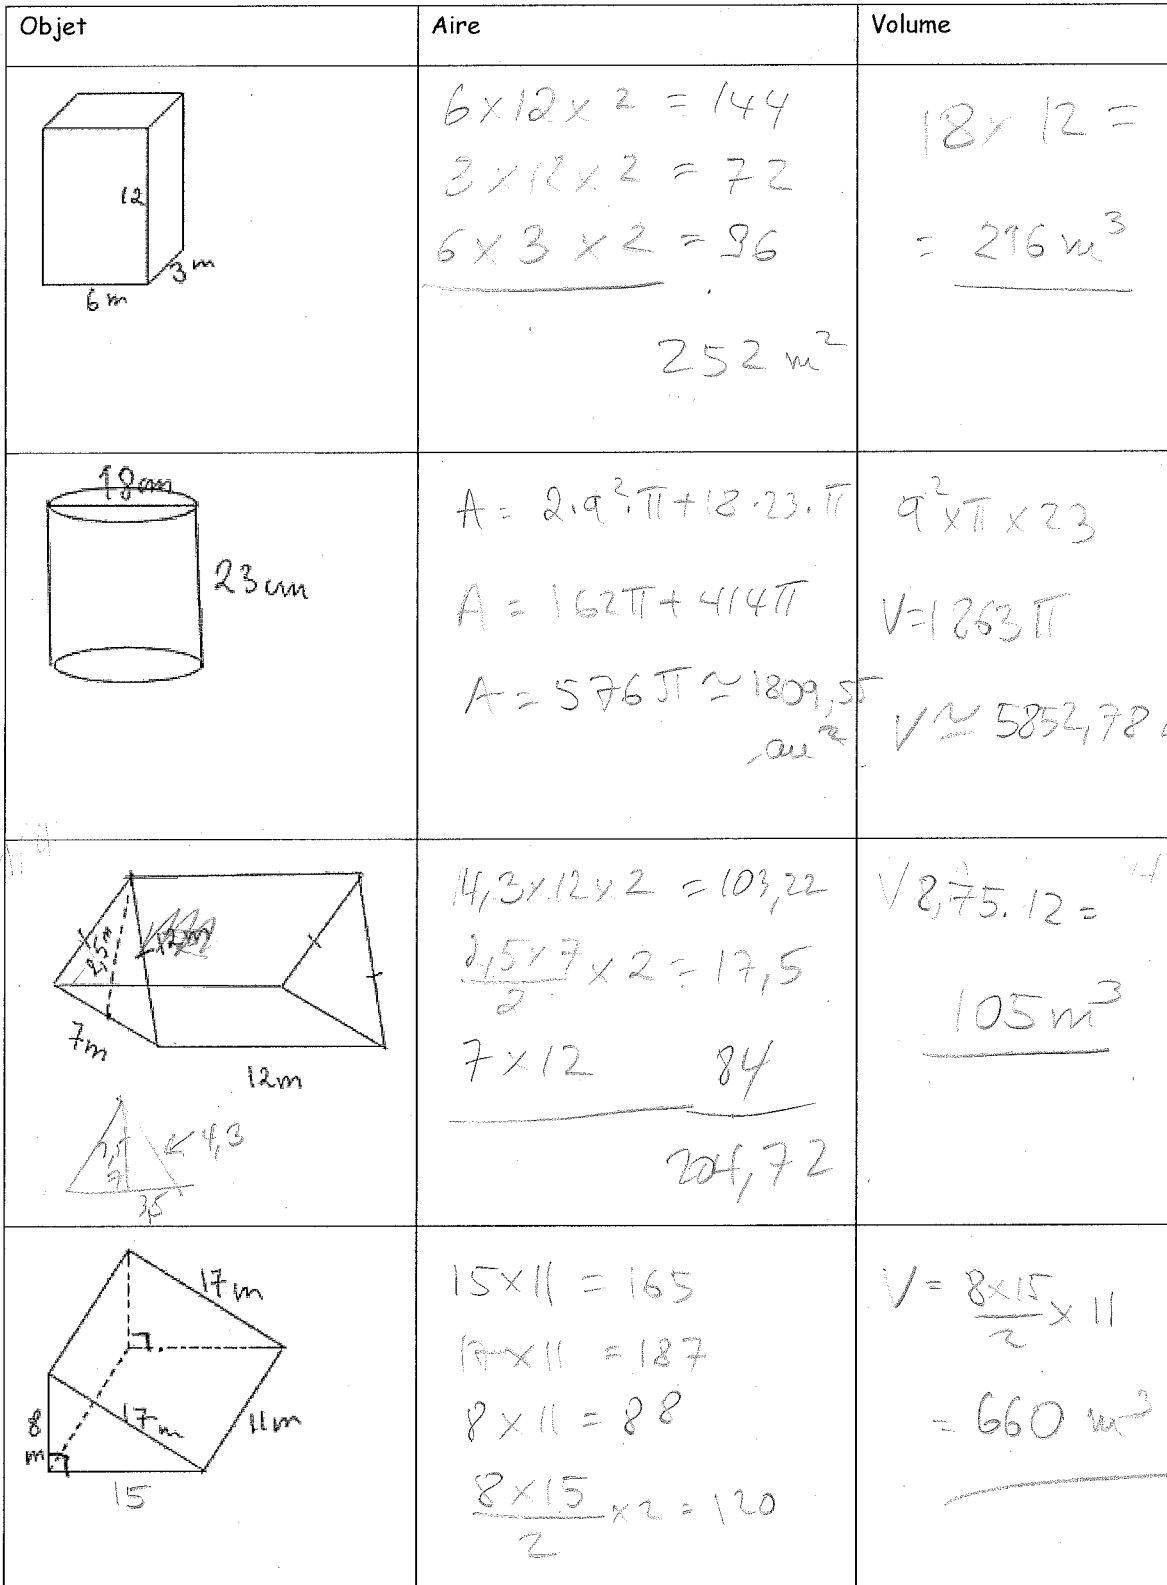 Objet
Aire
Volume
12
3m
6m
6 x 12 x 2 = 144
3 x 12 x 2 = 72
6 x 3 x 2 = 36
252 m²
18 x 12 =
= 216 m³
18cm
23 cm
A = 2.9².π + 18.23.π
A = 162π + 414π
A = 576π ≃ 1809,55
cm²
9² x π x 23
V = 1863π
V ≃ 5852,78
2,5m
7m
12m
4,3
3,5
14,3 x 12 x 2 = 103,22
2,5 x 7 / 2 x 2 = 17,5
7 x 12 84
204,72
V 8,75.12 =
105 m³
17m
8
m
17m
11m
15
15 x 11 = 165
17 x 11 = 187
8 x 11 = 88
8 x 15 / 2 x 2 = 120
V = 8 x 15 / 2 x 11
= 660 m³